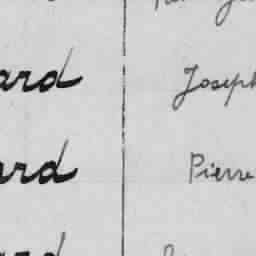 ard Joseph
ard Pierre
ard